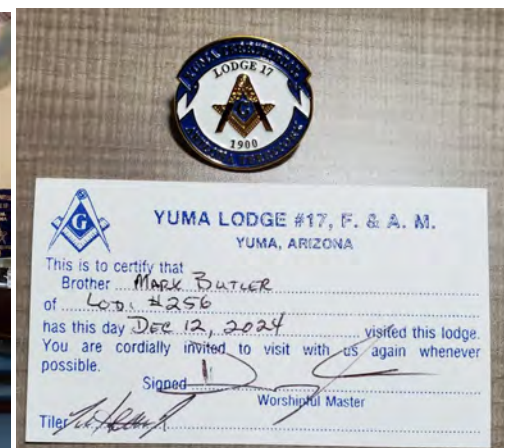 LODGE 17
G
1900
G
YUMA LODGE #17, F. & A. M.
YUMA, ARIZONA
This is to certify that
Brother MARK BUTLER
of LOD. #256
has this day DEC 12, 2024 visited this lodge.
You are cordially invited to visit with us again whenever
possible.
Signed
Worshipful Master
Tiler